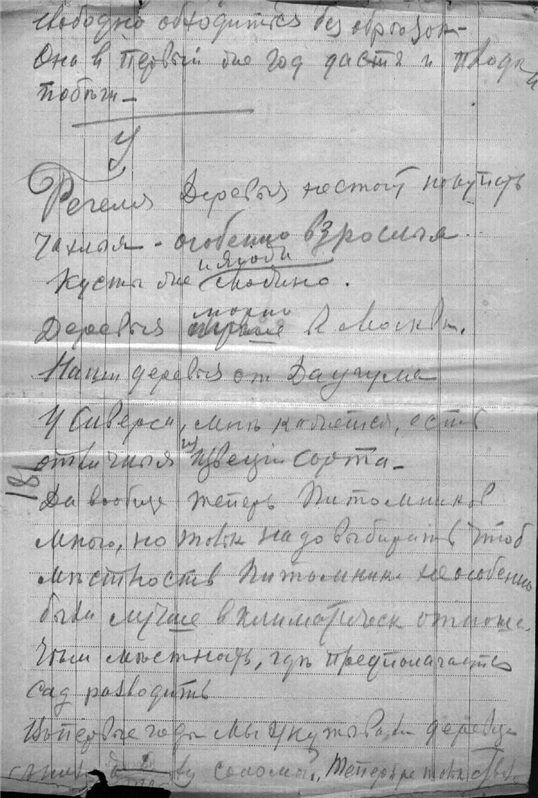 свободно обходиться без обрезок-
Она в первый же год дасть и плоды и
побеги-
У
Регеля деревья не стоит покупать
чахлыя - особенно взрослыя.
и ягоды
Кусты же можно.
можно
Деревья в Москве.
Наши деревья от Даугула
У Сиверса, мне кажется, есть
отличныя сорта-
Да вообще теперь Питомников
много, но только надо выбирать чтоб
местность Питомника не особенно
была лучше в климатическ отноше.
чем местность, где предполагается
сад разводить
В первые годы мы укутывали деревц
соломой, теперь
181